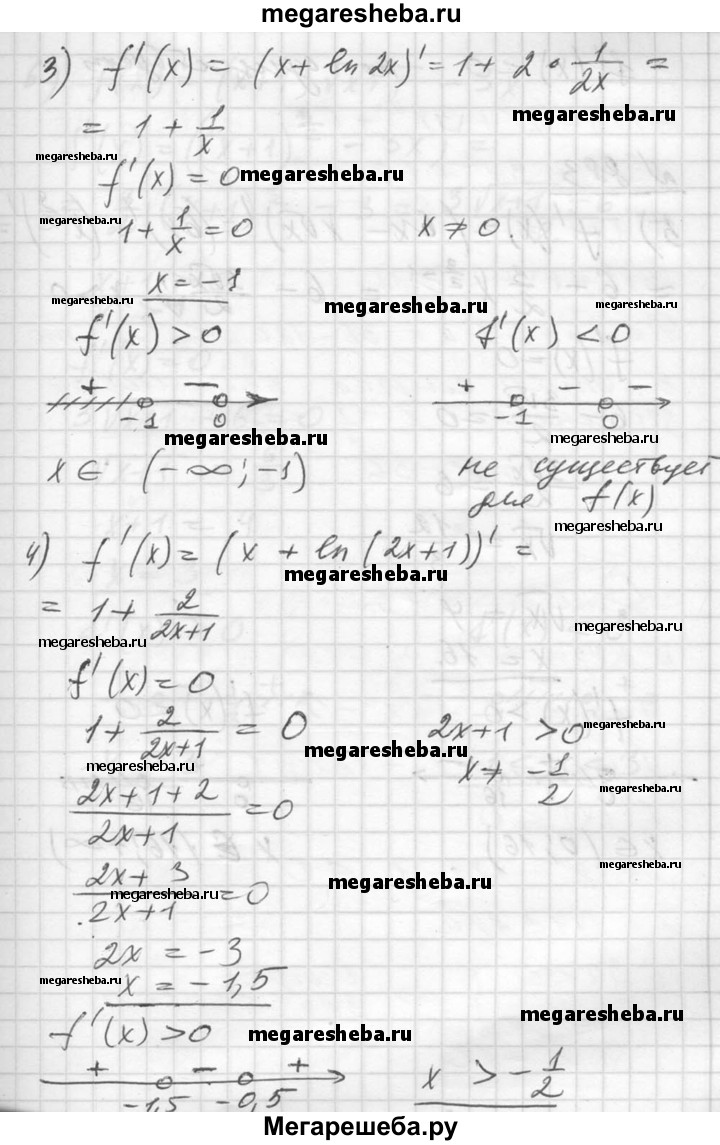 megaresheba.ru
3) f'(x) = (x + ln 2x)' = 1 + 2 · 1/2x =
megaresheba.ru
= 1 + 1/x
megaresheba.ru
f'(x) = 0
megaresheba.ru
megaresheba.ru
1 + 1/x = 0 x ≠ 0.
x = -1
megaresheba.ru
megaresheba.ru
megaresheba.ru
f'(x) > 0 f'(x) < 0
+ − + − −
-1 0 -1 0
megaresheba.ru
megaresheba.ru
x ∈ (-∞; -1) не существует
для f(x)
megaresheba.ru
4) f'(x) = (x + ln(2x+1))' =
megaresheba.ru
= 1 + 2/2x+1
megaresheba.ru
megaresheba.ru
f'(x) = 0
1 + 2/2x+1 = 0 2x+1 > 0
megaresheba.ru
megaresheba.ru
megaresheba.ru
x ≠ -1/2
megaresheba.ru
2x+1+2/2x+1 = 0
megaresheba.ru
megaresheba.ru
2x+3/2x+1 = 0
megaresheba.ru
megaresheba.ru
2x = -3
x = -1,5
megaresheba.ru
megaresheba.ru
f'(x) > 0
megaresheba.ru
+ − +
-1,5 -0,5
x > -1/2
Мегарешеба.ру